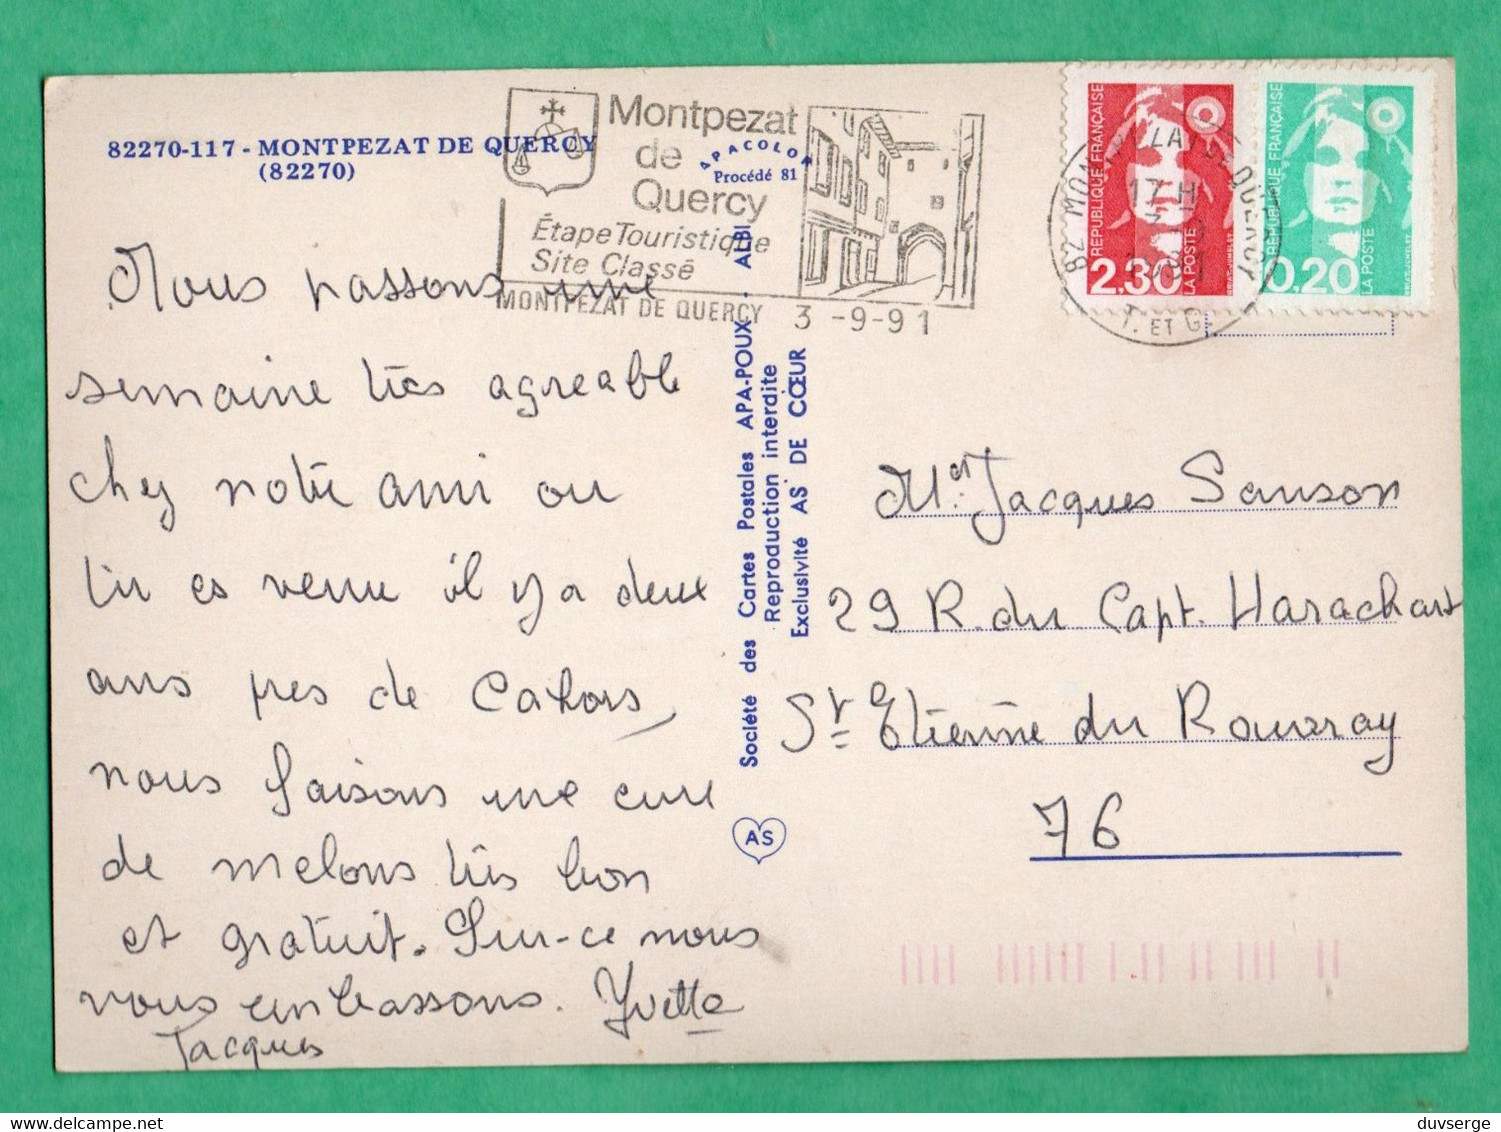 82270-117 - MONTPEZAT DE QUERCY
(82270)
Montpezat
de
Quercy
Étape Touristique
Site Classé
MONTPEZAT DE QUERCY 3 -9-91
APACOLOR
Procédé 81
RÉPUBLIQUE FRANÇAISE
2,30
LA POSTE
RÉPUBLIQUE FRANÇAISE
0,20
LA POSTE
17 H
T. ET G.
Nous passons une
semaine très agreable
chez notre ami ou
tu es venu il y a deux
ans pres de Cahors,
nous faisons une cure
de melons très bon
et gratuit. Sur-ce nous
vous embrassons. Yvette
Jacques
Société des Cartes Postales APA-POUX - ALBI
Reproduction interdite
Exclusivité AS DE CŒUR
AS
Mr Jacques Sanson
29 R. du Capt. Harachart
St Etienne du Rouvray
76
duvserge